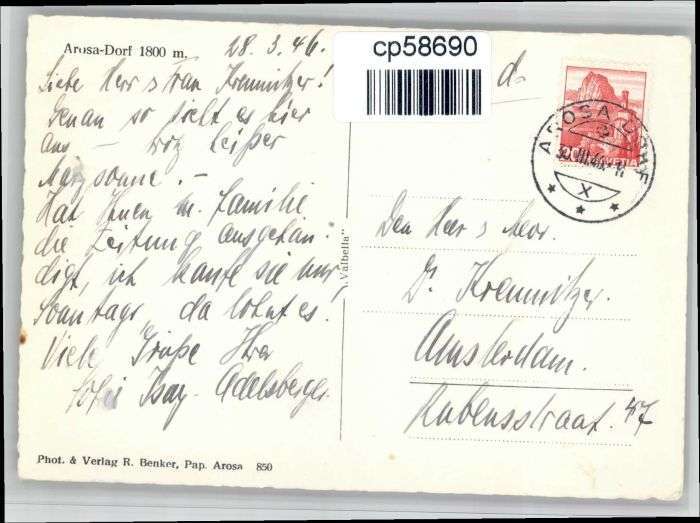 Arosa-Dorf 1800 m.
28. 3. 46.
Liebe Herr & Frau Kremnitzer!
Genau so sieht es hier
aus – trotz heißer
Märzsonne. –
Hat Ihnen m. Familie
die Zeitung ausgehän-
digt, ich kaufe sie nur
Sonntags, da lohnt es.
Viele Grüße Ihre
Isay-Adelsberger.
Phot. & Verlag R. Benker, Pap. Arosa 850
„Valbella"
cp58690
AROSA DORF
30.III.46
X
Den Heer & Mevr.
Dr. Kremnitzer.
Amsterdam.
Rubensstraat. 47